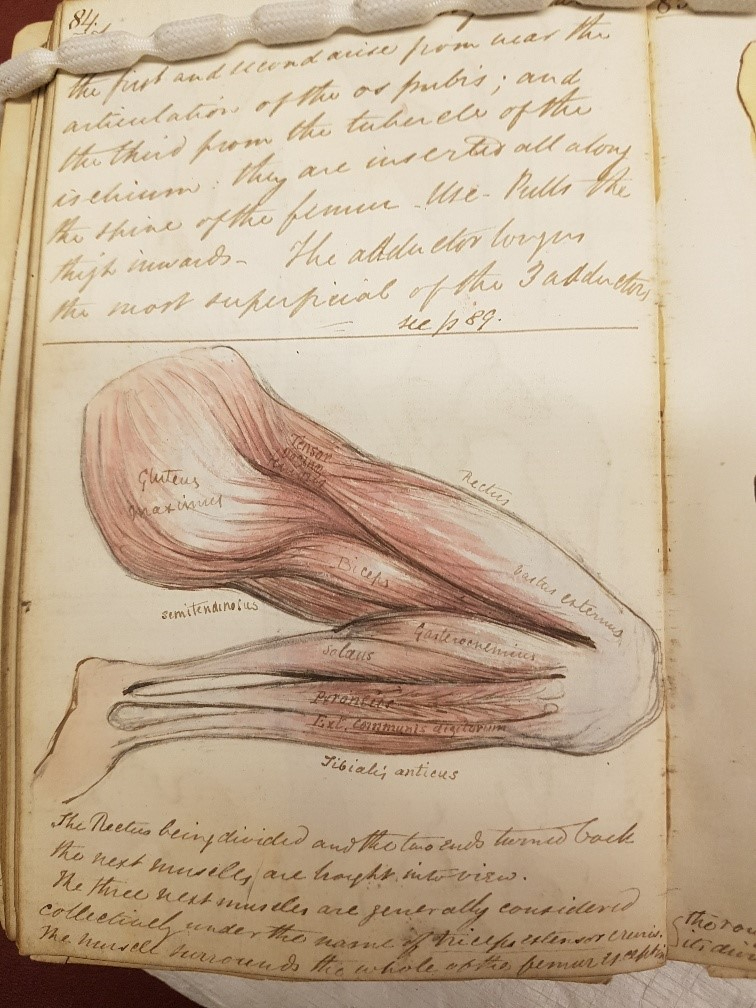 84.
the first and second arise from near the
articulation of the os pubis; and
the third from the tubercle of the
ischium: they are inserted all along
the spine of the femur - Use - Pulls the
thigh inwards - The adductor longus
the most superficial of the 3 adductors
see p 89.
Tensor
Vagina
Femoris
Gluteus
maximus
Rectus
Biceps
vastus externus
semitendinosus
Gasterocnemius
Solaus
Pironeus
Ext. communis digitorum
Tibialis anticus
The Rectus being divided and the two ends turned back
the next muscles are braght into view.
The three next muscles are generally considered
collectively under the name of Triceps extensor cruris.
The muscle surrounds the whole of the femur